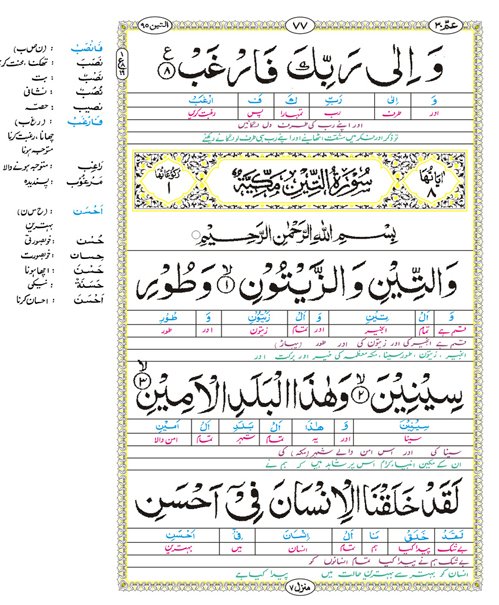 عمّ ۳۰
۷۷
التين ۹۵
وَ اِلٰى رَبِّكَ فَارْغَبْ ۸
وَ اِلٰى رَبِّ كَ فَ ارْغَبْ
اور طرف رب تمہارا پس رغبت کری
اور اپنے رب کی طرف دل لگائیں
اٰيَاتُهَا ۸
سُوْرَةُ التِّيْنِ مَكِّيَّةٌ
رُكُوْعُهَا ۱
بِسْمِ اللهِ الرَّحْمٰنِ الرَّحِيْمِ
وَالتِّيْنِ وَالزَّيْتُوْنِ ۱ وَطُوْرِ
وَ الْ تِيْنِ وَ الْ زَيْتُوْنِ وَ طُوْرِ
قسم ہے تمام انجیر اور تمام زیتون اور طور
قسم ہے انجیر کی اور زیتون کی اور طور (پہاڑ)
سِيْنِيْنَ ۲ وَهٰذَا الْبَلَدِ الْاَمِيْنِ ۳
سِيْنِيْنَ وَ هٰذَا الْ بَلَدِ الْ اَمِيْنِ
سینا اور یہ تمام شہر تمام امن والا
سینا کی اور اس امن والے شہر (مکہ) کی
لَقَدْ خَلَقْنَا الْاِنْسَانَ فِيْۤ اَحْسَنِ
لَقَدْ خَلَقْ نَا الْ اِنْسَانَ فِيْ اَحْسَنِ
بے شک پیدا کیا ہم تمام انسان میں بہترین
بے شک ہم نے پیدا کیا تمام انسانوں کو
انسان کو بہتر سے بہترین حالت میں پیدا کیا ہے
منزل ۷
فَانْصَبْ : (ن ص ب)
نَصَبٌ : تھکنا، محنت کر
نُصُبٌ : بت
نُصُبٌ : نشانی
نصیب : حصہ
فَارْغَبْ : (ر غ ب)
چاھنا، رغبت کرنا
متوجہ ہونا
رَاغِبٌ : متوجہ ہونے والا
مَرْغُوْبٌ : پسندیدہ
اَحْسَنُ : (ح س ن)
بہترین
حُسْنٌ : خوبصورتی
حسان : خوبصورت
حَسُنَ : اچھا ہونا
حَسَنَةٌ : نیکی
اَحْسَنَ : احسان کرنا